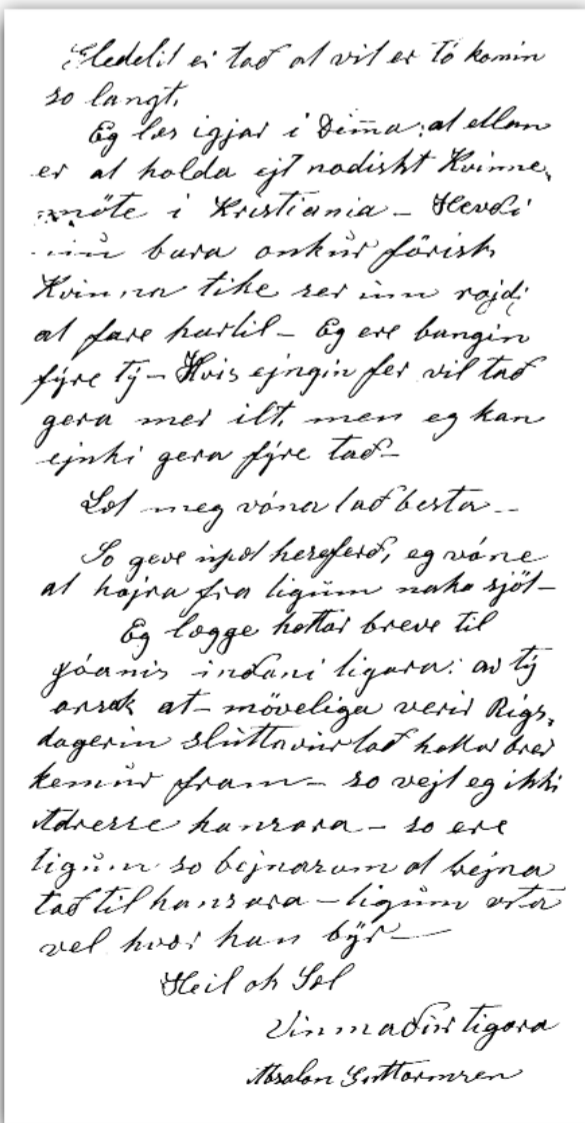 Gledelit ei tað at vit er tó komin
so langt.
Eg les igjar i Dimma: at ellan
er at holda ejt nodiskt Kvinne,
möte i Kristiania – Hevði
nú bara onkúr förisk
Kvinna tike ser inn rojdi
at fare hartil – Eg ere bangin
fýre tý – Hvis ejngin fer vil tað
gera mer ilt, men eg kan
ejnki gera fýre tað –
Lat meg vóna tað besta –
So geve úpat hereferð, eg vóne
at hojra fra tigúm naka sjöl –
Eg legge hettar breve til
Jóanis indani tigara: av tý
orsak at – möveliga verir Rigs,
dagerin slúttavúr tað hettar brev
kemúr fram – so vejt eg ikki
Adresse hansara – so ere
tigúm so bejnasum at bejna
tað til hansara – tigúm vita
vel hvar han býr –
Heil ok Sæl
Vinmaðúr tigara
Absalon Guttormsen